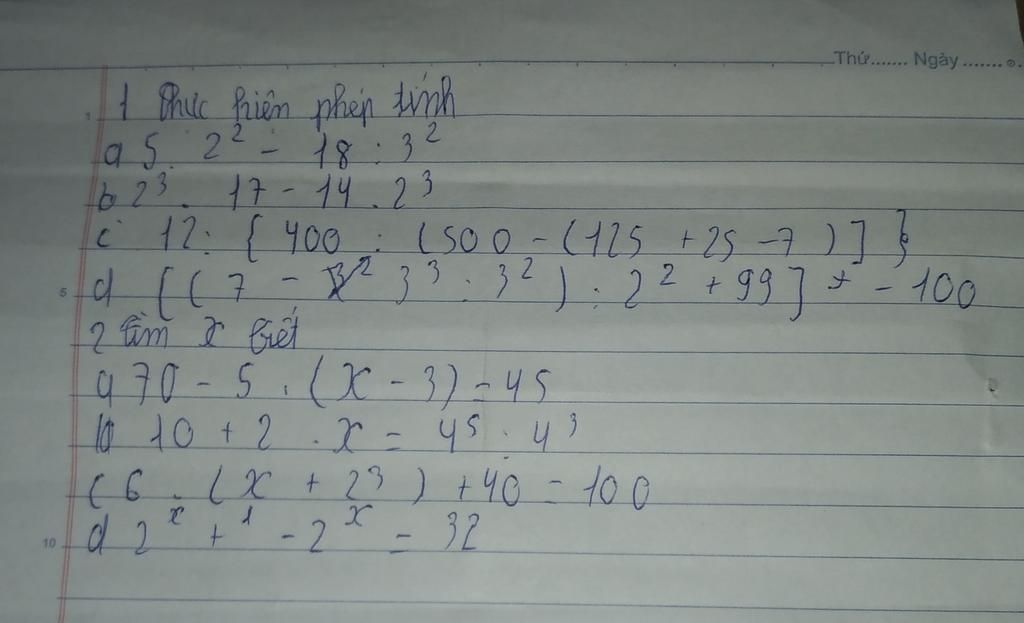 Thứ....... Ngày .......
1 Thực hiện phép tính
a 5. 2² - 18 : 3²
b 2³ . 17 - 14 . 2³
c 12: { 400 : (500 - (125 + 25 - 7 ) ] }
5 d [ ( 7 - 3³ : 3² ) : 2² + 99 ] + - 100
2 tìm x biết
a 70 - 5 . (x - 3) = 45
b 10 + 2 . x = 4⁵ : 4³
c 6 . ( x + 2³ ) + 40 = 100
10 d 2ˣ + ¹ - 2ˣ = 32